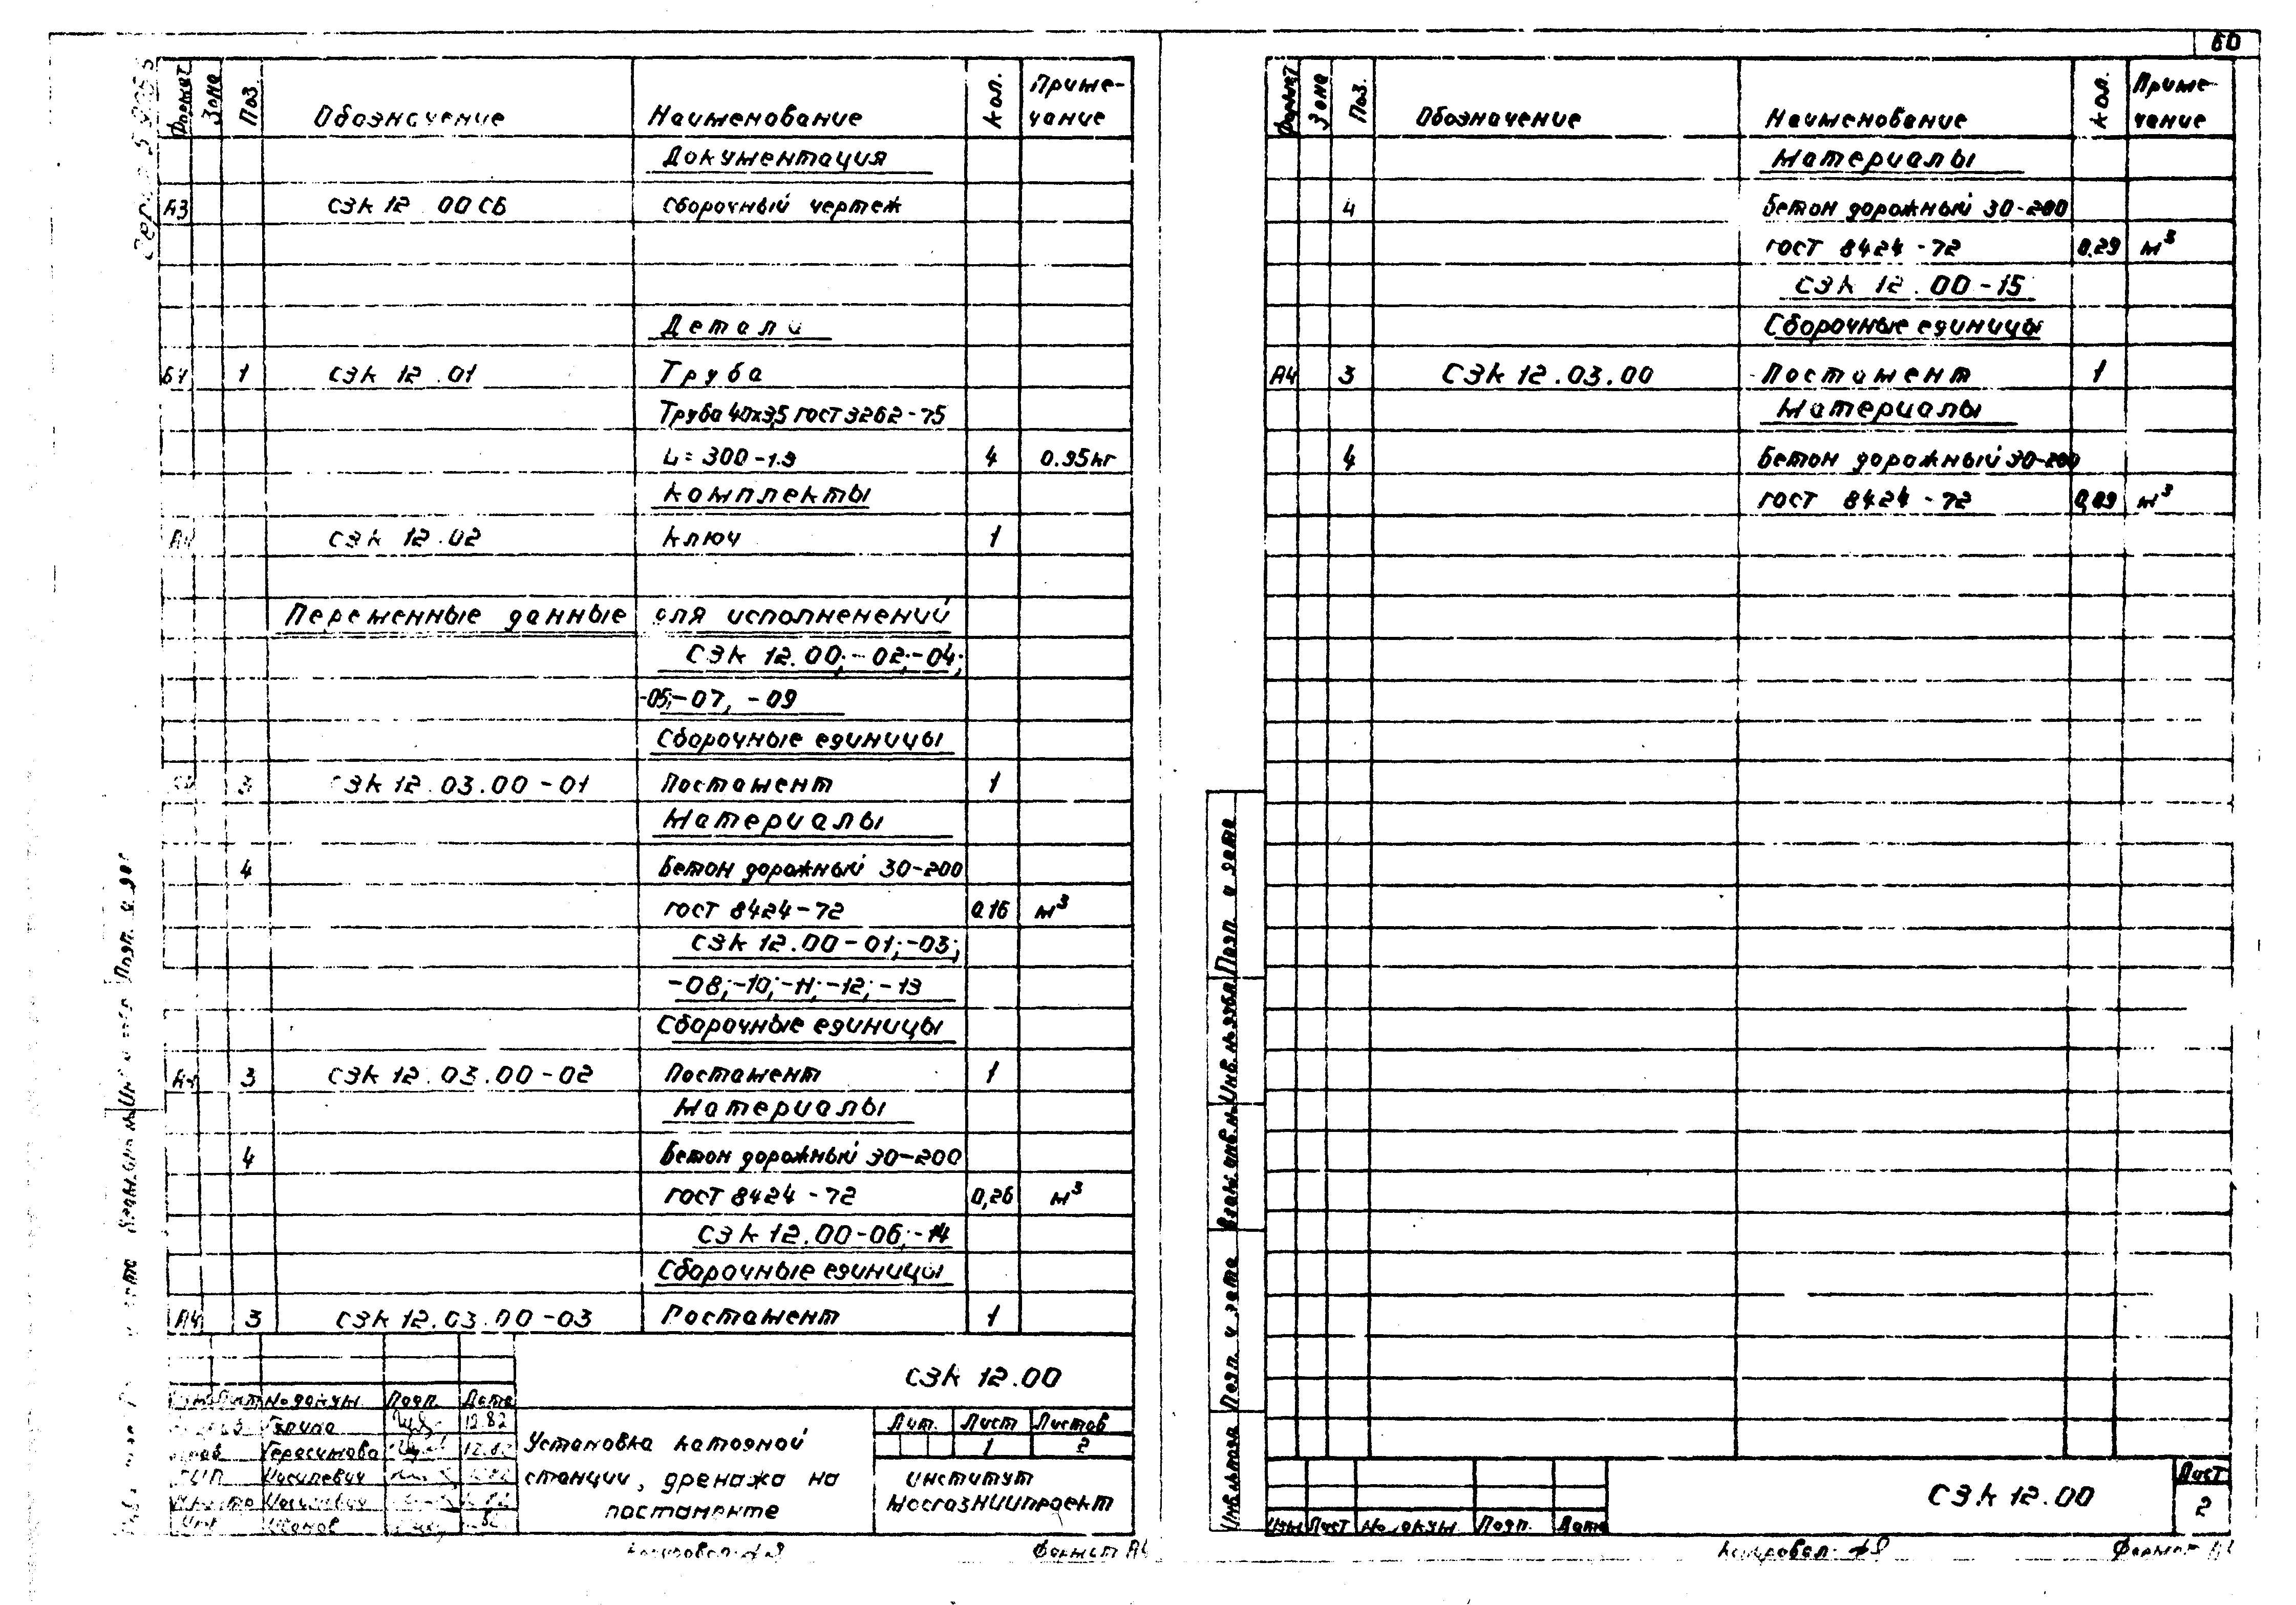 60
Формат Зона Поз. Обозначение Наименование Кол. Приме-
чание
Документация
А3 СЗК 12.00 СБ Сборочный чертеж
Детали
БЧ 1 СЗК 12.01 Труба
Труба 40х3,5 ГОСТ 3262-75
L=300-1.9 4 0.95кг
Комплекты
А4 СЗК 12.02 Ключ 1
Переменные данные для исполненений
СЗК 12.00;-02;-04;
-05;-07, -09
Сборочные единицы
3 СЗК 12.03.00-01 Постамент 1
Материалы
4 Бетон дорожный 30-200
ГОСТ 8424-72 0.16 м³
СЗК 12.00-01;-03;
-08;-10;-11;-12;-13
Сборочные единицы
А4 3 СЗК 12.03.00-02 Постамент 1
Материалы
4 Бетон дорожный 30-200
ГОСТ 8424-72 0,26 м³
СЗК 12.00-06;-14
Сборочные единицы
А4 3 СЗК 12.03.00-03 Постамент 1
СЗК 12.00
Лист № докум. Подп. Дата
12.82
Герасимова 12.82
ГИП
Установка катодной
станции, дренажа на
постаменте
Лит. Лист Листов
1 2
институт
МосгазНИИпроект
Копировал
Формат А4
Формат Зона Поз. Обозначение Наименование Кол. Приме-
чание
Материалы
4 Бетон дорожный 30-200
ГОСТ 8424-72 0.29 м³
СЗК 12.00-15
Сборочные единицы
А4 3 СЗК 12.03.00 Постамент 1
Материалы
4 Бетон дорожный 30-200
ГОСТ 8424-72 0,09 м³
Подп. и дата
Инв. № дубл.
Взам. инв. №
Подп. и дата
Инв. № подл.
Изм Лист № докум. Подп. Дата
СЗК 12.00
Лист
2
Копировал
Формат А4